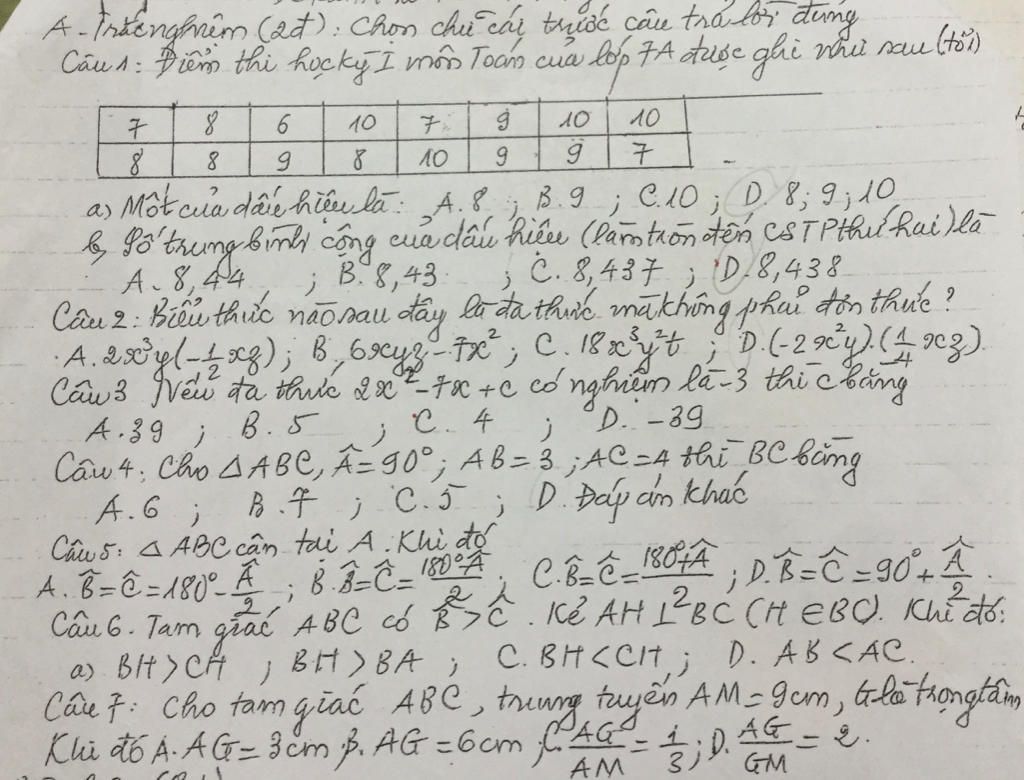 A - Trắc nghiệm (2đ): Chọn chữ cái trước câu trả lời đúng
Câu 1: Điểm thi học kỳ I môn Toán của lớp 7A được ghi như sau (tổ 1)
7 8 6 10 7 9 10 10
8 8 9 8 10 9 9 7
a) Mốt của dấu hiệu là: A. 8 ; B. 9 ; C. 10 ; D. 8; 9; 10
b, Số trung bình cộng của dấu hiệu (làm tròn đến CSTP thứ hai) là
A. 8,44 ; B. 8,43 ; C. 8,437 ; D. 8,438
Câu 2: Biểu thức nào sau đây là đa thức mà không phải đơn thức?
A. 2x³y(-1/2 xz); B. 6xyz - 7x²; C. 18x³y²t ; D. (-2x²y).(1/4 xz).
Câu 3 Nếu đa thức 2x² - 7x + c có nghiệm là -3 thì c bằng
A. 39 ; B. 5 ; C. 4 ; D. -39
Câu 4: Cho △ABC, Â = 90°; AB = 3 ; AC = 4 thì BC bằng
A. 6 ; B. 7 ; C. 5 ; D. Đáp án khác
Câu 5: △ABC cân tại A. Khi đó
A. B̂ = Ĉ = 180° - Â/2 ; B. B̂ = Ĉ = (180° - Â)/2 ; C. B̂ = Ĉ = (180° + Â)/2 ; D. B̂ = Ĉ = 90° + Â/2.
Câu 6. Tam giác ABC có B̂ > Ĉ. Kẻ AH ⊥ BC (H ∈ BC). Khi đó:
a) BH > CH ; BH > BA ; C. BH < CH ; D. AB < AC.
Câu 7: Cho tam giác ABC, trung tuyến AM = 9cm, G là trọng tâm
Khi đó A. AG = 3cm; B. AG = 6cm; C. AG/AM = 1/3; D. AG/GM = 2.